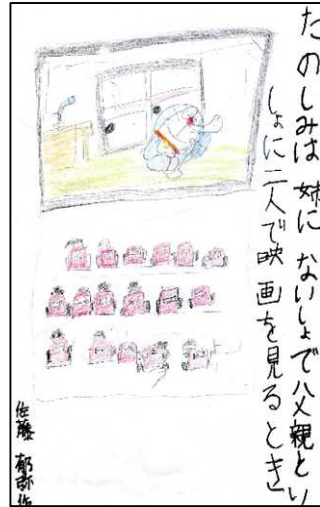 たのしみは 姉に ないしょで父親とい
しょに二人で映画を見るとき
佐藤 郁弥作